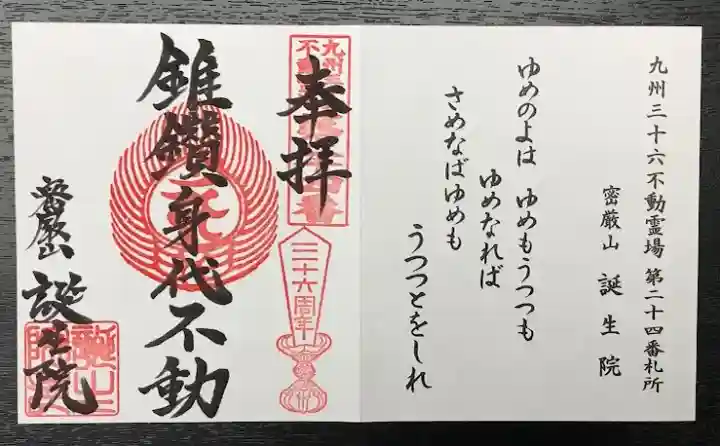 九州三十六不動霊場 第二十四番札所
密厳山 誕生院
ゆめのよは ゆめもうつつも
ゆめなれば
さめなばゆめも
うつつとをしれ
奉拝
三十六周年
錐鑽身代不動
密厳山 誕生院